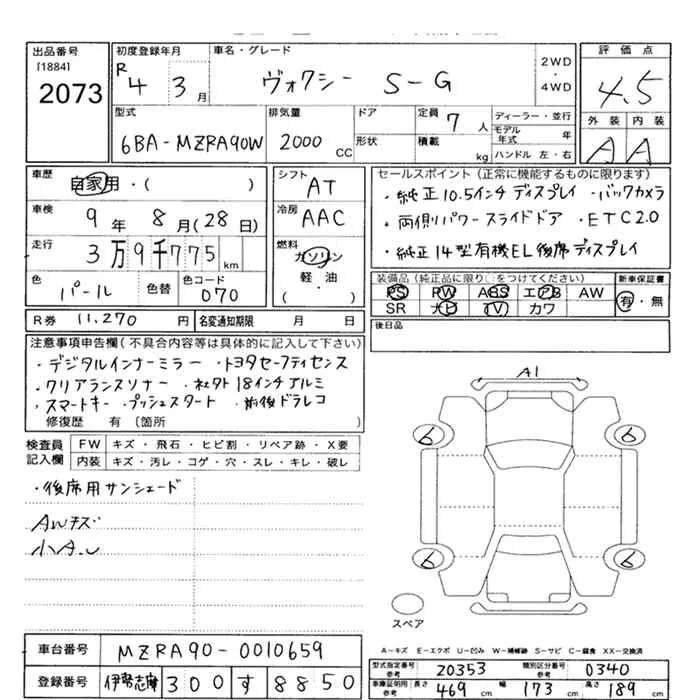 出品番号
[1884]
2073
初度登録年月
R 4 3月
車名・グレード
ヴォクシー S-G
2WD
・
4WD
評価点
4.5
外装 内装
A A
型式
6BA-MZRA90W
排気量
2000 CC
ドア
形状
定員 7人
積載 kg
ディーラー・並行
モデル年式 年
ハンドル 左・右
車歴
自家用・( )
車検 9年 8月(28日)
走行 3万9千775km
色 パール 色替 色コード 070
R券 11,270円 名変通知期限 月 日
シフト
AT
冷房
AAC
燃料
ガソリン
軽・油
( )
セールスポイント(正常に機能するものに限ります)
・純正10.5インチディスプレイ ・バックカメラ
・両側パワースライドドア ・ETC2.0
・純正14型有機EL後席ディスプレイ
装備品(純正品に限り○をつけてください)
PS PW ABS エアB AW
SR ナビ TV カワ
新車保証書
有・無
後日品
注意事項申告欄(不具合内容等は具体的に記入して下さい)
・デジタルインナーミラー ・トヨタセーフティセンス
・クリアランスソナー ・社外18インチアルミ
・スマートキー ・プッシュスタート ・前後ドラレコ
修復歴 有(箇所 )
検査員記入欄
FW キズ・飛石・ヒビ割・リペア跡・X要
内装 キズ・汚レ・コゲ・穴・スレ・キレ・破レ
・後席用サンシェード
AWキズ
小A.U
A1
6 6
6 6
スペア
A-キズ E-エクボ U-凹み W-補修跡 S-サビ C-腐食 XX-交換済
車台番号 MZRA90-0010659
登録番号 伊勢志摩 300 す 8850
型式指定番号 参考 20353 類別区分番号 参考 0340
車庫証明用 参考 長さ 469cm 幅 173cm 高さ 189cm